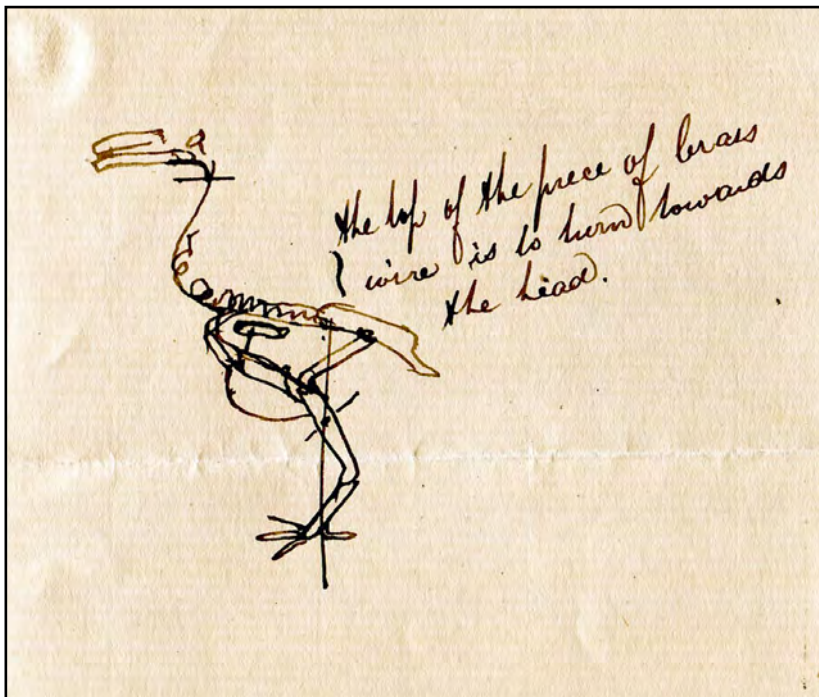 a
the top of the piece of brass
wire is to turn towards
the head.